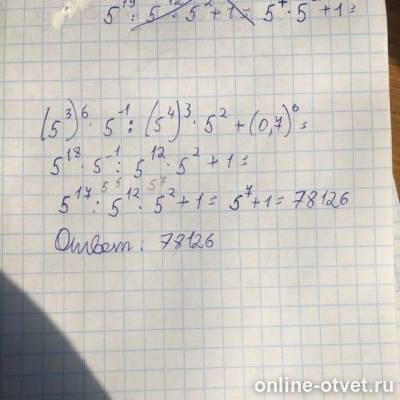 5¹⁹ : 5¹² · 5² + 1 = 5⁷ · 5 + 1 =
(5³)⁶ · 5⁻¹ : (5⁴)³ · 5² + (0,7)⁰ =
5¹⁸ · 5⁻¹ : 5¹² · 5² + 1 =
5⁵ 5⁷
5¹⁷ : 5¹² · 5² + 1 = 5⁷ + 1 = 78126
Ответ: 78126
online-otvet.ru